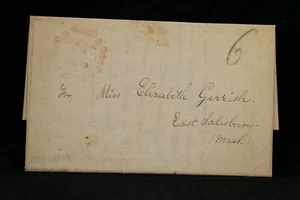 6
For Miss Elizabeth Gerrish.
East Salisbury.
(Mass)